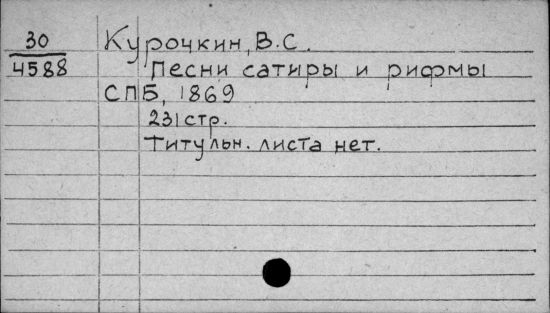 30
4588
Курочкин, В.С.
Песни сатиры и рифмы
СПБ, 1869
231 стр.
Титульн. листа нет.